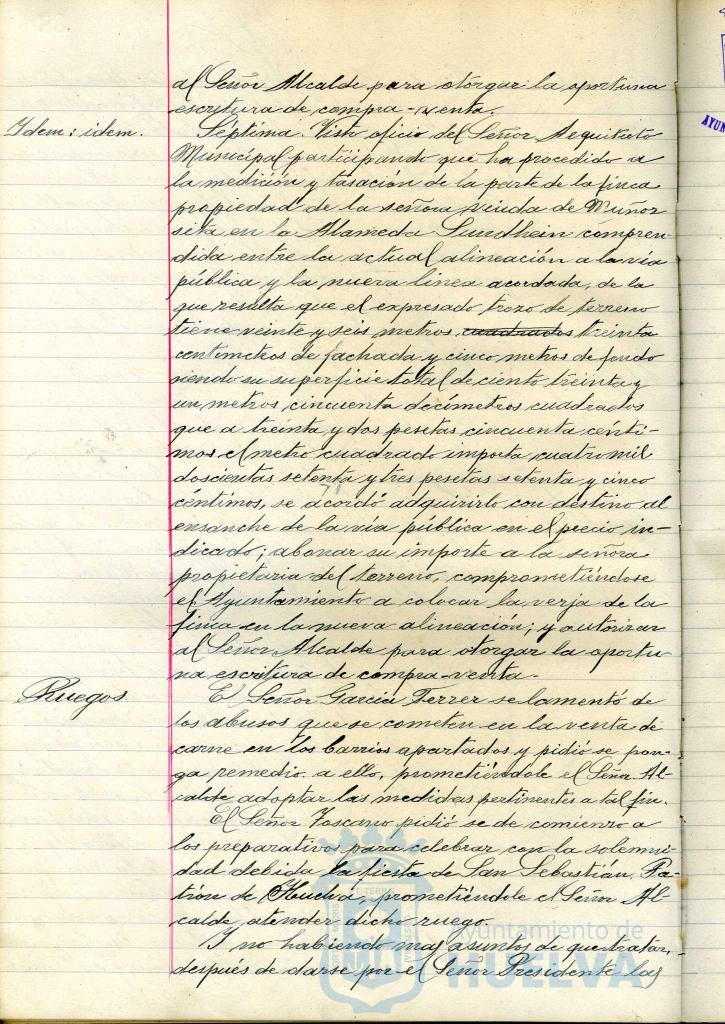 al Señor Alcalde para otorgar la oportuna
escritura de compra-venta.
Idem: idem.
Séptima. Visto oficio del Señor Arquitecto
Municipal participando que ha procedido a
la medición y tasación de la parte de la finca
propiedad de la señora viuda de Muñoz
sita en la Alameda Sundhein compren-
dida entre la actual alineación a la vía
pública y la nueva linea acordada, de la
que resulta que el expresado trozo de terreno
tiene veinte y seis metros cuadrados treinta
centimetros de fachada y cinco metros de fondo
siendo su superficie total de ciento treinta y
un metros cincuenta decímetros cuadrados
que a treinta y dos pesetas cincuenta cénti-
mos el metro cuadrado importa cuatro mil
doscientas setenta y tres pesetas setenta y cinco
céntimos, se acordó adquirirlo con destino al
ensanche de la vía pública en el precio in-
dicado; abonar su importe a la señora
propietaria del terreno, comprometiéndose
el Ayuntamiento a colocar la verja de la
finca en la nueva alineación; y autorizar
al Señor Alcalde para otorgar la oportu-
na escritura de compra-venta.
Ruegos
El Señor Garcia Ferrer se lamentó de
los abusos que se cometen en la venta de
carne en los barrios apartados y pidió se pon-
ga remedio a ello, prometiéndole el Señor Al-
calde adoptar las medidas pertinentes a tal fin.
El Señor Toscano pidió se de comienzo a
los preparativos para celebrar con la solemni-
dad debida la fiesta de San Sebastián, Pa-
trón de Huelva, prometiéndole el Señor Al-
calde atender dicho ruego.
Y no habiendo mas asuntos de que tratar,
después de darse por el Señor Presidente las
Ayuntamiento de
HUELVA